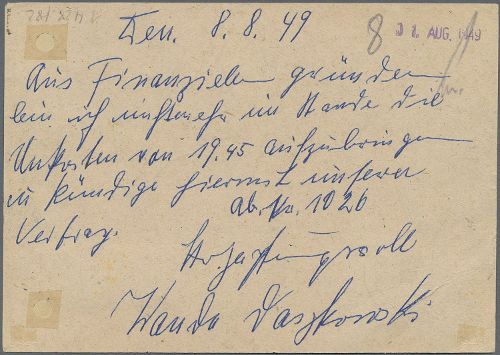 8. 8. 49
8
31. AUG. 1949
Aus Finanziellen gründen
bin ich nicht mehr im Stande die
Unkosten von 19.45 aufzubringen
u kündige hiermit unseren
Ab. No. 1026
Vertrag.
Hochachtungsvoll
Wanda Daszkowski